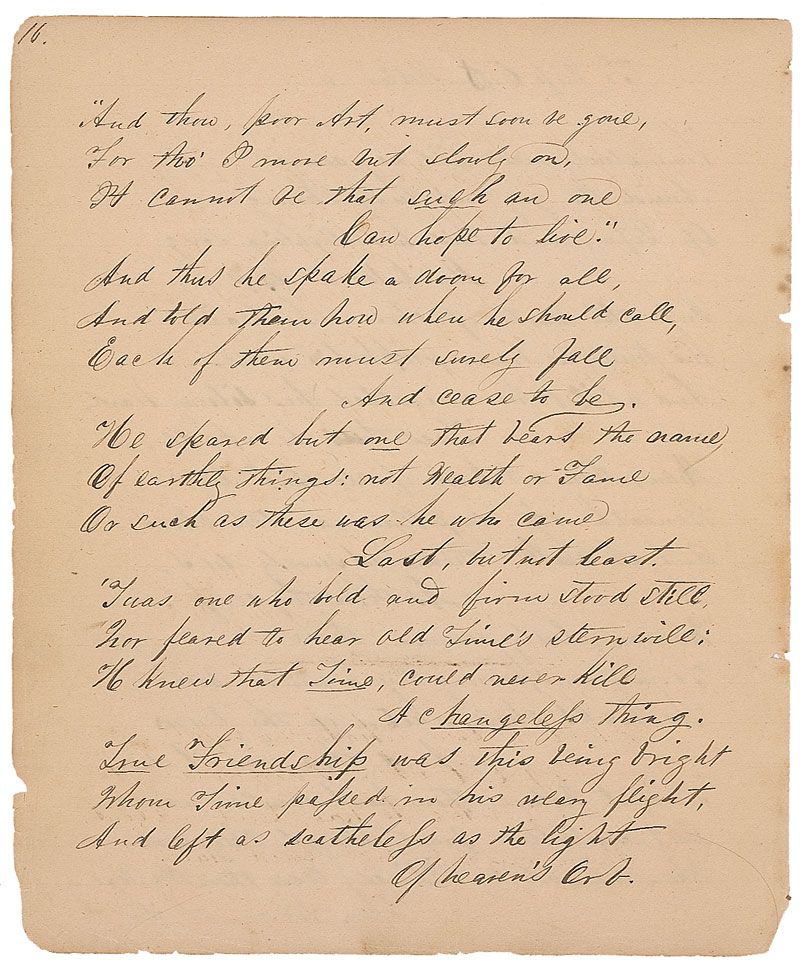 16.
"And thou, poor Art, must soon be gone,
For tho' I move but slowly on,
It cannot be that such an one
Can hope to live."
And thus he spake a doom for all,
And told them how when he should call,
Each of them must surely fall
And cease to be.
He spared but one that bears the name
Of earthly things: not Wealth or Fame
Or such as these was he who came
Last, but not least.
'Twas one who bold and firm stood still,
Nor feared to hear old Time's stern will;
He knew that Time, could never kill
A changeless thing.
True Friendship was this being bright
Whom Time passed in his weary flight,
And left as scatheless as the light
Of heaven's Orb.